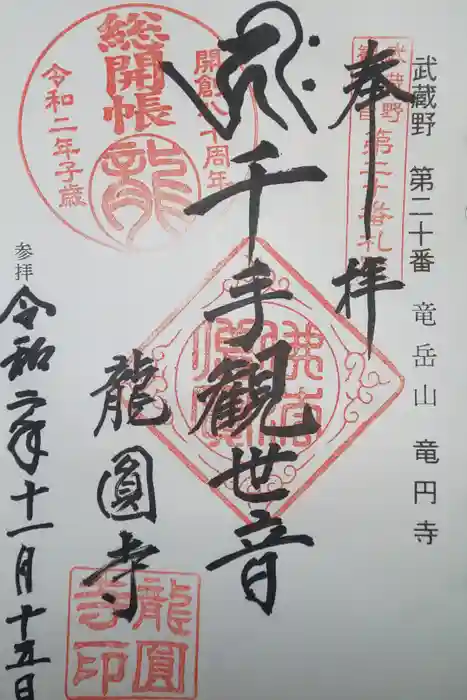 武蔵野 第二十番 竜岳山 竜円寺
奉拝
武蔵野
第二十番札
千手観世音
佛法僧寶
総開帳
開創八十周年
令和二年子歳
龍
龍圓寺
龍圓寺印
参拝
令和二年十一月十五日